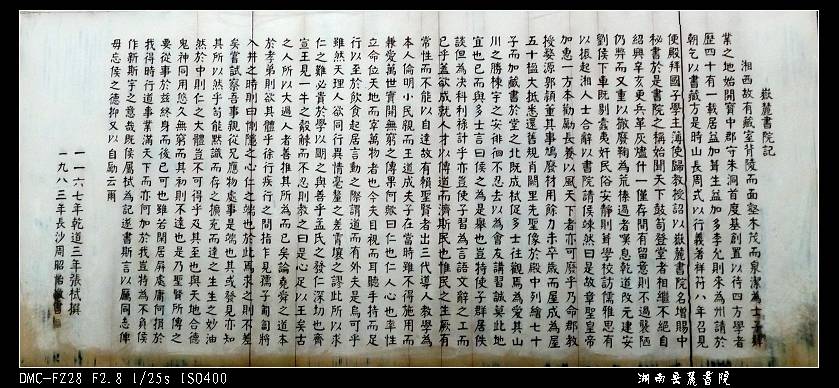 嶽麓書院記
湘西故有藏室背陵而面壑木茂而泉潔為士子肄
業之地始開寶中郡守朱洞首度基創置以待四方學者
歷四十有一載居益加葺生益加多李允則來為州請於
朝乞以書藏方是時山長周式以行義著祥符八年召見
便殿拜國子學主簿使歸教授詔以嶽麓書院名增賜中
秘書於是書院之稱始聞天下鼓笥登堂者相繼不絕自
紹興辛亥更兵革灰燼什一僅存間有留意則不過襲陋
仍弊而又重以撤廢鞠為荒榛過者嘆息乾道改元建安
劉侯下車既剔蠹夷奸民俗安靜則葺學校訪儒雅思有
以振起湘人士合辭以書院請侯竦然曰是故章聖皇帝
加惠一方本勸勵長養以風天下者亦可廢乎乃命郡教
授婺源郭穎董其事鳩廢材用餘力未卒歲而屋成為屋
五十楹大抵悉還舊規肖闕里先聖像於殿中列繪七十
子而加藏書於堂之北既成栻促多士往觀焉為愛其山
川之勝棟宇之安徘徊不忍去以為會友講習誠莫此地
宜也已而與多士言曰侯之為是舉也豈特使子群居佚
談但為決科利祿計乎亦豈使子習為言語文辭之工而
已乎蓋欲成就人才以傳道而濟斯民也惟民之生厥有
常性而不能以自達故有賴聖賢者出三代導人教學為
本人倫明小民親而王道成夫子在當時雖不得施用而
兼愛萬世實開無窮之傳果何歟曰仁也仁人心也率性
立命位天地而宰萬物者也今夫目視而耳聽手持而足
行以至於飲食起居言動之際謂道而有外夫是烏可乎
雖然天理人欲同行異情毫釐之差霄壤之謬此所以求
仁之難必貴於學以明之與善乎孟氏之發仁深切也齊
宣王見一牛之觳觫而不忍則教之曰是心足以王矣古
之人所以大過人者善推其所為而已矣論堯舜之道本
於孝弟則欲其體乎徐行疾行之間指乍見孺子匍匐將
入井之時則曰惻隱之心仁之端也於此焉求之則不差
矣嘗試察吾事親從兄應物處事是端也其或發見亦知
其所以然乎苟能默識而存之擴充而達之生生之妙油
然於中則仁之大體豈不可得乎及其至也與天地合德
鬼神同用悠久無窮而其初則不遠也是乃聖賢所傳之
要從事於茲終身而後已可也雖若閒居屏處庸何損於
我得時行道事業滿天下而亦何加於我豈特為不負侯
作新斯宇之意哉既侯屬栻為記遂書斯言以厲同志俾
毋忘侯之德抑又以自勵云爾
一一六七年乾道三年張栻撰
一九八三年長沙周昭怡敬書
DMC-FZ28 F2.8 1/25s ISO400
湖南岳麓書院